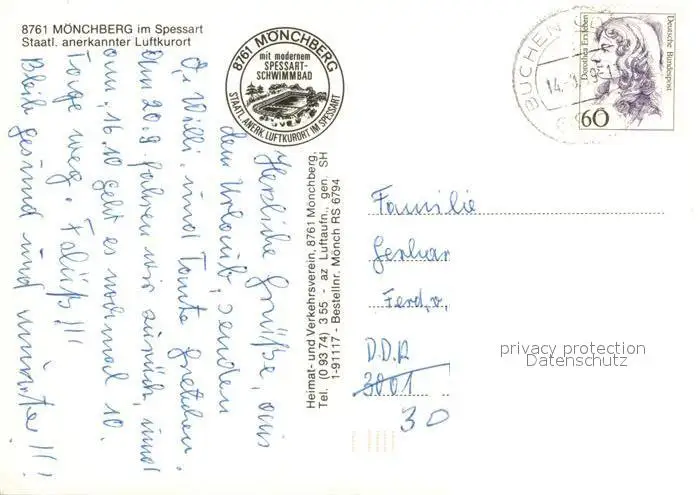 8761 MÖNCHBERG im Spessart
Staatl. anerkannter Luftkurort
8761 MÖNCHBERG
mit modernem
SPESSART-
SCHWIMMBAD
STAATL. ANERK. LUFTKURORT IM SPESSART
Herzliche Grüße, aus
dem Urlaub, senden
O. Willi und Tante Gretchen.
Am 20.9. fahren wir zurück, und
am 16.10 geht es nochmal 10
Tage weg.
Bleibt gesund und munter!!!
Heimat- und Verkehrsverein, 8761 Mönchberg,
Tel. (0 93 74) 3 55 - az Luftaufn., gen. SH
1-91117 - Bestellnr. Mönch RS 6794
BUCHEN
14.
Dorothea Erxleben
Deutsche Bundespost
60
Familie
Gerhar
Ferd. v.
D.D.R
3001
30
privacy protection
Datenschutz